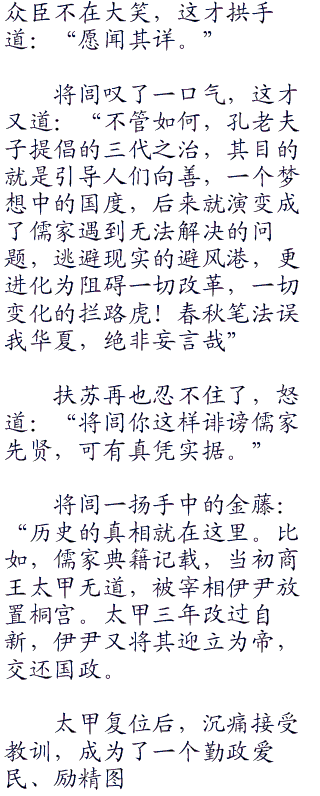 众臣不在大笑，这才拱手
道：“愿闻其详。”
将闾叹了一口气，这才
又道：“不管如何，孔老夫
子提倡的三代之治，其目的
就是引导人们向善，一个梦
想中的国度，后来就演变成
了儒家遇到无法解决的问
题，逃避现实的避风港，更
进化为阻碍一切改革，一切
变化的拦路虎！春秋笔法误
我华夏，绝非妄言哉”
扶苏再也忍不住了，怒
道：“将闾你这样诽谤儒家
先贤，可有真凭实据。”
将闾一扬手中的金藤：
“历史的真相就在这里。比
如，儒家典籍记载，当初商
王太甲无道，被宰相伊尹放
置桐宫。太甲三年改过自
新，伊尹又将其迎立为帝，
交还国政。
太甲复位后，沉痛接受
教训，成为了一个勤政爱
民、励精图